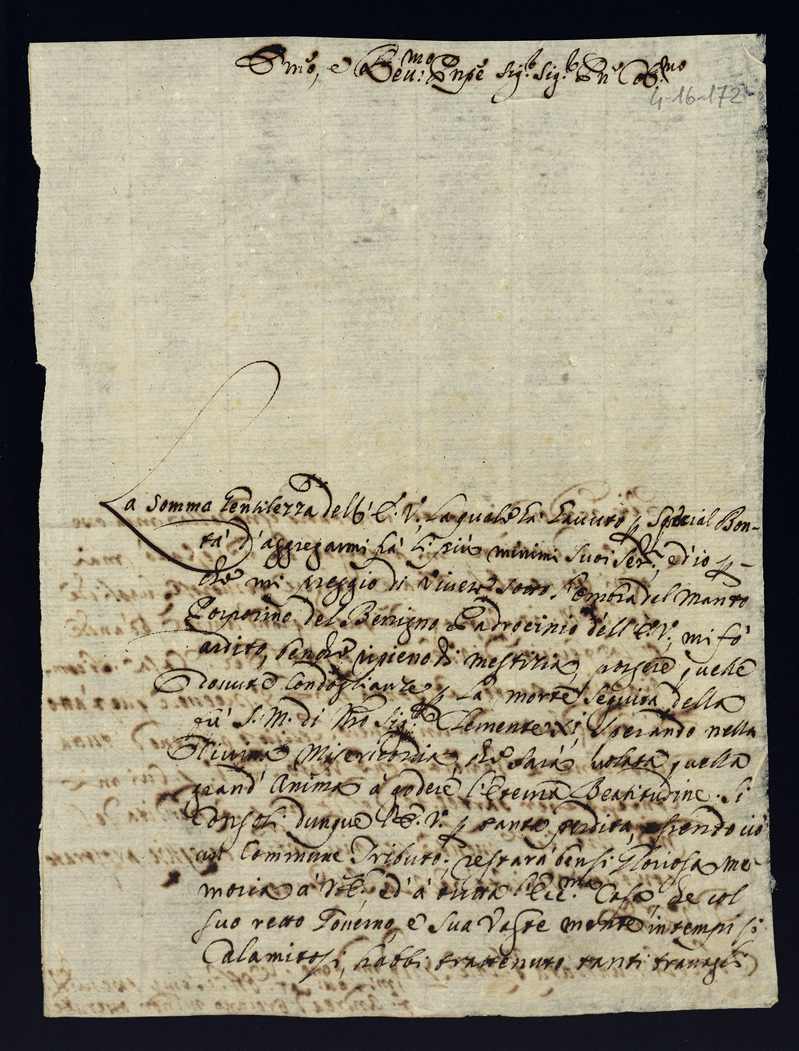 Emo, e Reu:mo Pnpe Sig.r Sig.r Pne Col.mo
4-16-172
La somma Gentilezza dell' E. V. la quale hà hauuto p Special Bon-
tà d'aggregarmi frà li più minimi suoi Ser, ed io p-
che mi preggio di Viuere sotto l'ombra del Manto
Porporino del Benigno Padrocinio dell' E. V., mi fò
ardito, benche ripieno di mestitia, porgere quelle
douute Condoglianze p la morte seguita della
fù S. M. di Nro Sig.re Clemente XI, sperando nella
Diuina Misericordia, che sarà volata quella
grand' Anima à godere l'Eterna Beatitudine. Si
Consoli dunque l'E. V. p tanta perdita, essendo ciò
un Commune Tributo; restarà bensì Gloriosa me-
moria à V. E., ed' à tutta l'Ecc.ma Casa, che col
suo retto Gouerno, e sua Vaste mente in tempi sì
Calamitosi, habbi trattenuto tanti trauagli